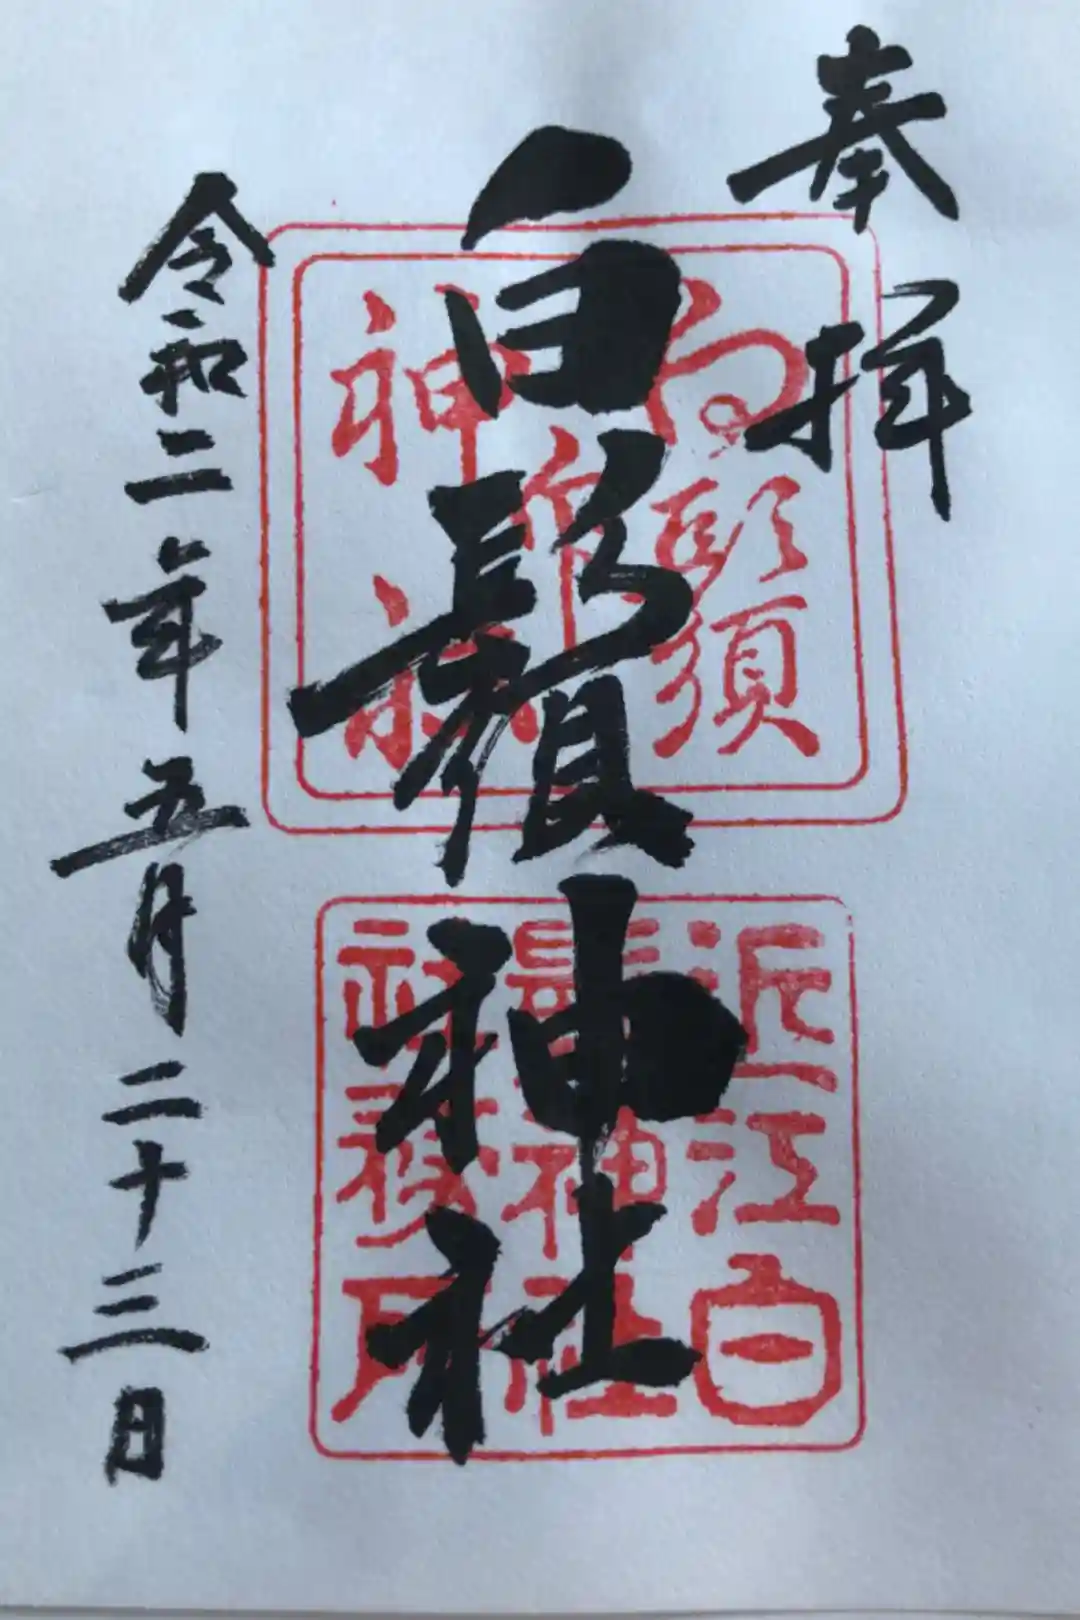 奉拝
白鬚神社
令和二年五月二十三日
白鬚
神社
近江白
鬚神社
社務所